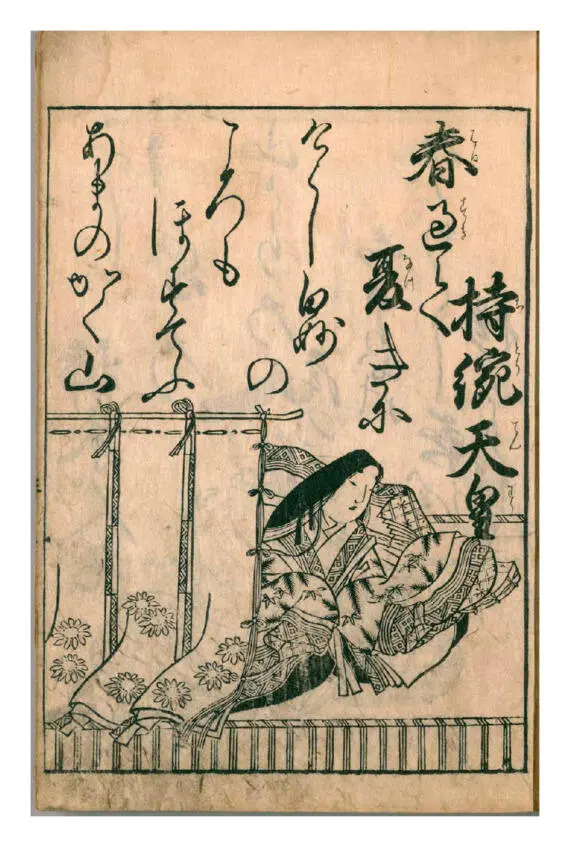 持統天皇
春過て
夏きに
けらし白妙
の
ころも
ほすてふ
あまのかく山